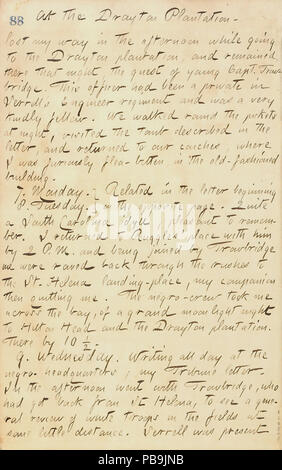 88
At the Drayton Plantation.
lost my way in the afternoon while going
to the Drayton plantation, and remained
there that night, the guest of young Capt. Trow-
bridge. This officer had been a private in
Serrell's Engineer regiment and was a very
kindly fellow. We walked round the pickets
at night, visited the tent described in the
letter, and returned to our couches, where
I was furiously flea-bitten in the old-fashioned
building.
7. Monday. Related in the letter beginning
8. Tuesday. on the opposite page. Quite
a South Carolina Idyl, pleasant to remem-
ber. I returned to place with him
by 2 P.M. and being joined by Trowbridge
we were rowed back through the rushes to
the St. Helena landing-place, my companion
then quitting me. The negro-crew took me
across the bay, of a grand moonlight night
to Hilton Head and the Drayton plantation.
There by 10 1/2.
9. Wednesday. Writing all day at the
negro-headquarters, my Tribune letter.
In the afternoon went with Trowbridge, who
had got back from St. Helena, to see a gene-
ral review of white troops in the fields at
some little distance. Serrell was present
alamy
PB9JNB